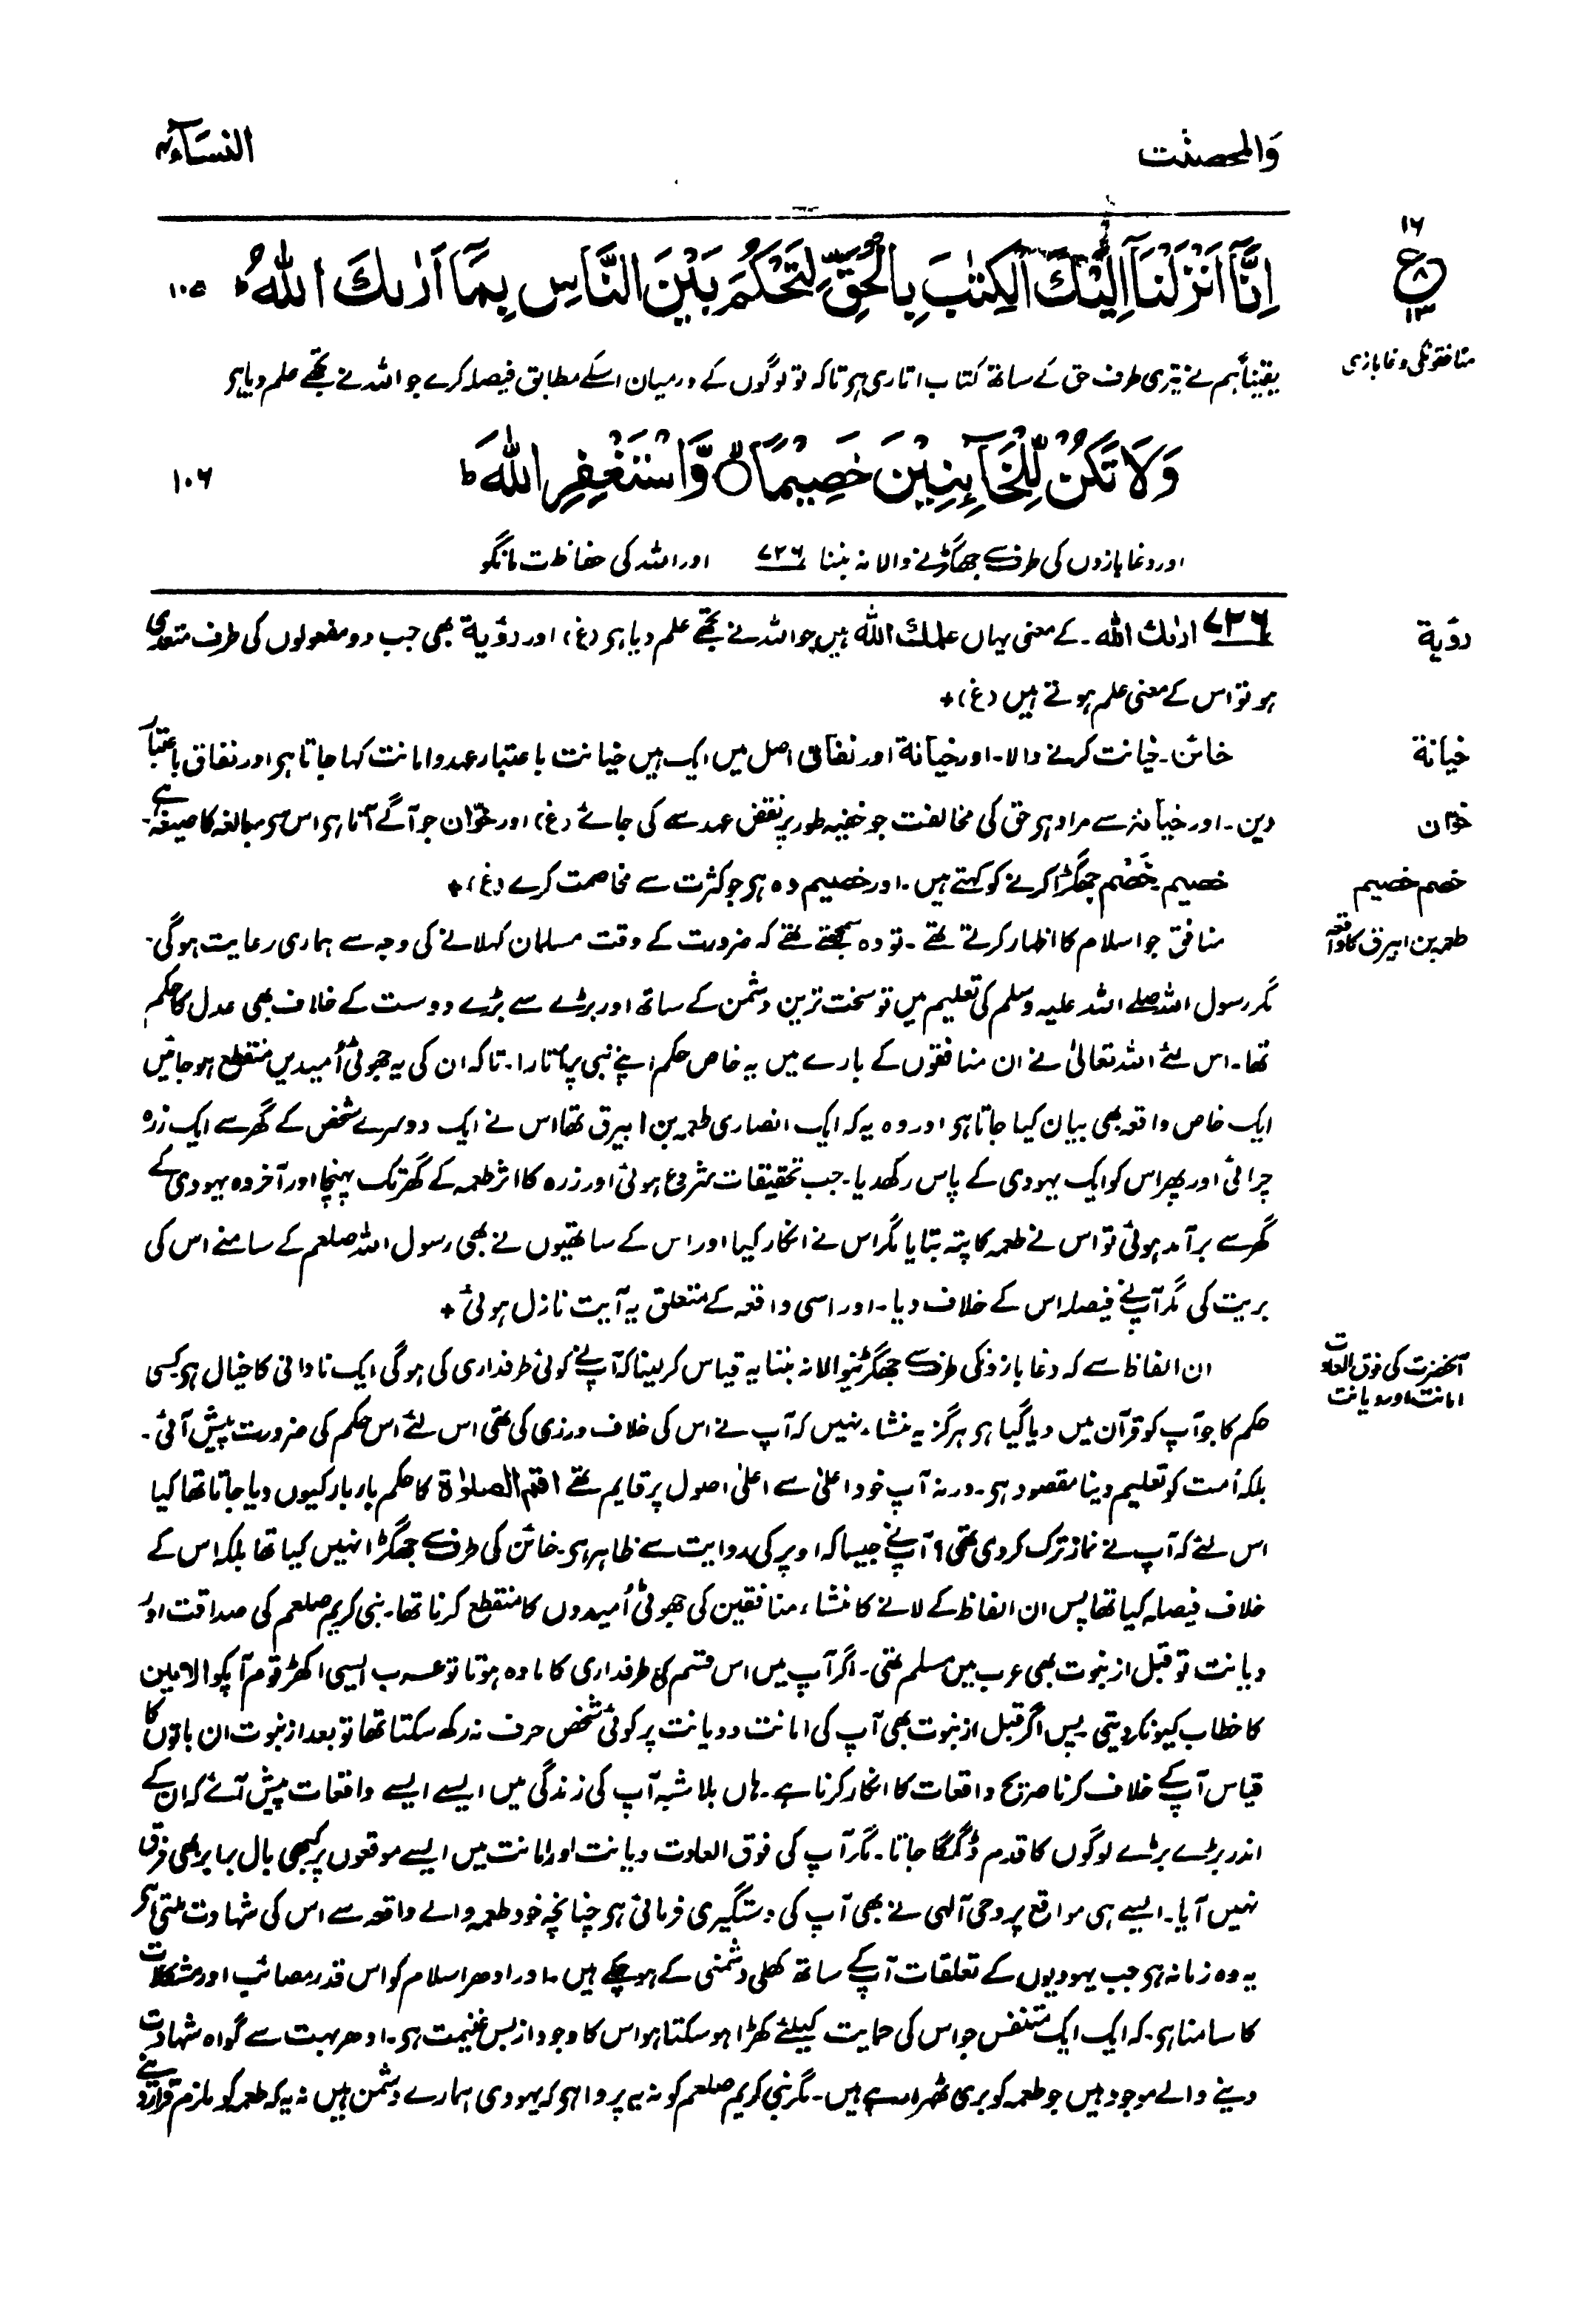 وَالمحصنٰت
النسَآء ۴
۱۶
ع
۸
۱۳
اِنَّآ اَنْزَلْنَآ اِلَيْكَ الْكِتٰبَ بِالْحَقِّ لِتَحْكُمَ بَيْنَ النَّاسِ بِمَآ اَرٰىكَ اللّٰهُ ؕ ۱۰۵
منافقونکی دغابازی
یقیناً ہم نے تیری طرف حق کے ساتھ کتاب اتاری ہر تاکہ تو لوگوں کے درمیان اسکے مطابق فیصلہ کرے جو اللہ نے تجھے علم دیا ہر
وَلَا تَكُنْ لِّلْخَآىِٕنِيْنَ خَصِيْمًا ۙ وَّاسْتَغْفِرِ اللّٰهَ ؕ ۱۰۶
اور دغابازوں کی طرف سے جھگڑنے والا نہ بننا ۷۲۶ اور اللہ کی حفاظت مانگو
رؤية
۷۲۶ ارٰىك اللّٰه ۔ کے معنی یہاں علمك اللّٰه ہیں جو اللہ نے تجھے علم دیا ہر (غ) اور رؤية بھی جب دو مفعولوں کی طرف متعدی
ہو تو اس کے معنی علم ہوتے ہیں (غ) +
خيانة
خائن ۔ خیانت کرنے والا ۔ اور خيانة اور نفاق اصل میں ایک ہیں خیانت باعتبار عہد و امانت کہا جاتا ہر اور نفاق باعتبار
خوّان
دین ۔ اور خیانۃ سے مراد ہر حق کی مخالفت جو خفیہ طور پر نقض عہد سے کی جائے (غ) اور خوّان جو آگے آتا ہر اس سے مبالغہ کا صیغہ ہے۔
خصم خصيم
خصيم ۔ خَصْم جھگڑا کرنے کو کہتے ہیں ۔ اور خصيم وہ ہر جو کثرت سے مخاصمت کرے (غ) +
طعمہ بن ابیرق کا واقعہ
منافق جو اسلام کا اظہار کرتے تھے ۔ تو وہ سمجھتے تھے کہ ضرورت کے وقت مسلمان کہلانے کی وجہ سے ہماری رعایت ہوگی ۔
مگر رسول اللہ صلے اللہ علیہ وسلم کی تعلیم میں تو سخت ترین دشمن کے ساتھ اور بڑے سے بڑے دوست کے خلاف بھی عدل کا حکم
تھا ۔ اس لئے اللہ تعالیٰ نے ان منافقوں کے بارے میں یہ خاص حکم اپنے نبی پر اُتارا ۔ تاکہ ان کی یہ جھوٹی اُمیدیں منقطع ہو جائیں
ایک خاص واقعہ بھی بیان کیا جاتا ہر اور وہ یہ کہ ایک انصاری طعمہ بن ابیرق تھا اس نے ایک دوسرے شخص کے گھر سے ایک زرہ
چرائی اور پھر اس کو ایک یہودی کے پاس رکھدیا ۔ جب تحقیقات شروع ہوئی اور زرہ کا اثر طعمہ کے گھر تک پہنچا اور آخر وہ یہودی کے
گھر سے برآمد ہوئی تو اس نے طعمہ کا پتہ بتایا مگر اس نے انکار کیا اور اس کے ساتھیوں نے بھی رسول اللہ صلعم کے سامنے اس کی
بریت کی مگر آپ نے فیصلہ اس کے خلاف دیا ۔ اور اسی واقعہ کے متعلق یہ آیت نازل ہوئی +
آنحضرت کی فوق العادت
امانت اور دیانت
ان الفاظ سے کہ دغابازونکی طرف سے جھگڑنیوالا نہ بننا یہ قیاس کر لینا کہ آپ نے کوئی طرفداری کی ہوگی ایک نادانی کا خیال ہر کسی
حکم کا جو آپ کو قرآن میں دیا گیا ہر ہرگز یہ منشاء نہیں کہ آپ نے اس کی خلاف ورزی کی تھی اس لئے اس حکم کی ضرورت پیش آئی ۔
بلکہ اُمت کو تعلیم دینا مقصود ہر ۔ ورنہ آپ خود اعلیٰ سے اعلیٰ اصول پر قایم تھے اقم الصلوٰة کا حکم بار بار کیوں دیا جاتا تھا کیا
اس لئے کہ آپ نے نماز ترک کر دی تھی؟ آپ نے جیسا کہ اوپر کی روایت سے ظاہر ہر ۔ خائن کی طرف سے جھگڑا نہیں کیا تھا بلکہ اس کے
خلاف فیصلہ کیا تھا پس ان الفاظ کے لانے کا منشاء منافقین کی جھوٹی اُمیدوں کا منقطع کرنا تھا ۔ نبی کریم صلعم کی صداقت اور
دیانت تو قبل از نبوت بھی عرب میں مسلم تھی ۔ اگر آپ میں اس قسم کی طرفداری کا مادہ ہوتا تو عرب ایسی اکھڑ قوم آپکو الامین
کا خطاب کیونکر دیتی پس اگر قبل از نبوت بھی آپ کی امانت و دیانت پر کوئی شخص حرف نہ رکھ سکتا تھا تو بعد از نبوت ان باتوں کا
قیاس آپ کے خلاف کرنا صریح واقعات کا انکار کرنا ہے ۔ ہاں بلاشبہ آپ کی زندگی میں ایسے ایسے واقعات پیش آئے کہ ان کے
اندر بڑے بڑے لوگوں کا قدم ڈگمگا جاتا ۔ مگر آپ کی فوق العادت دیانت اور امانت میں ایسے موقعوں پر کبھی بال برابر بھی فرق
نہیں آیا ۔ ایسے ہی مواقع پر وحی آلہی نے بھی آپ کی دستگیری فرمائی ہر چنانچہ خود طعمہ والے واقعہ سے اس کی شہادت ملتی ہر
یہ وہ زمانہ ہر جب یہودیوں کے تعلقات آپ کے ساتھ کھلی دشمنی کے ہو چکے ہیں ۔ اور ادھر اسلام کو اس قدر مصائب اور مشکلات
کا سامنا ہر ۔ کہ ایک ایک متنفس جو اس کی حمایت کیلئے کھڑا ہو سکتا ہو اس کا وجود از بس غنیمت ہر ۔ ادھر بہت سے گواہ شہادت
دینے والے موجود ہیں جو طعمہ کو بری ٹھہرا رہے ہیں ۔ مگر نبی کریم صلعم کو نہ یہ پروا ہر کہ یہودی ہمارے دشمن ہیں نہ یہ کہ طعمہ کو ملزم قرار دینے